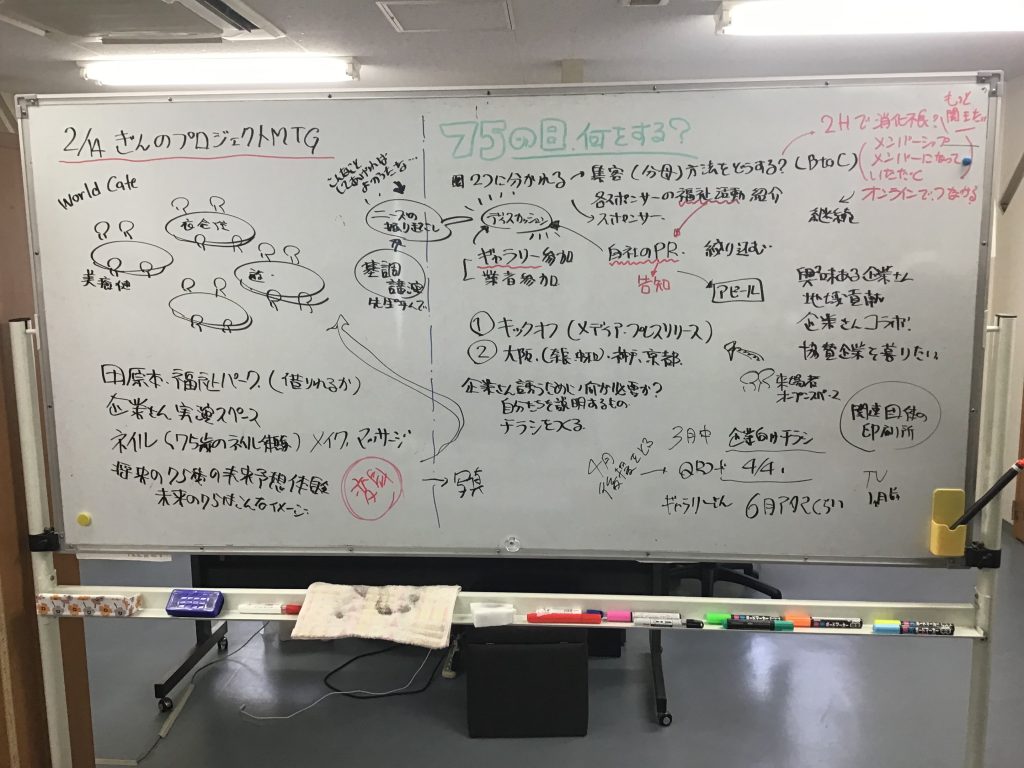 2/14 ぎんのプロジェクトMTG
World Cafe
ニーズの
掘り起こし
基調
講演
田原本・福祉パーク(借りれるか)
企業さん 実演スペース
ネイル(75歳のネイル体験) メイク、マッサージ
将来の75歳の未来予想体験
→ 写真
75の日.何をする?
2つに分かれる → 集客(分母)方法をどうする?(BtoC)
各スポンサーの福祉運動 紹介
スポンサー
ディスカッション
ギャラリー参加
業者参加
自社のPR. 絞り込む
告知
アピール
① キックオフ(メディア・プレスリリース)
② 大阪、神戸、京都
企業さん誘うために何が必要か?
自分たちを説明するもの
チラシをつくる
3月中 企業向けチラシ
4/4
ギャラリーさん 6月アタマくらい
来場者
オープンスペース
2Hで消化不良?
もっと
メンバーシップ
メンバーになって
いただく
オンラインでつなげる
継続
興味ある企業さん
地域貢献
企業さんコラボ!
協賛企業を募りたい
関連団体の
印刷所
TV
1ヶ月前